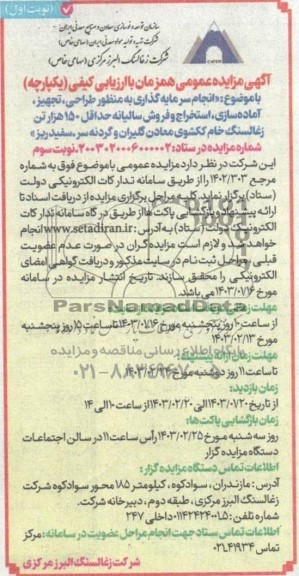 (نوبت اول)
سازمان توسعه و نوسازی معادن و صنایع معدنی ایران
شرکت تهیه و تولید مواد معدنی ایران (سهامی خاص)
شرکت زغالسنگ البرز مرکزی (سهامی خاص)
آگهی مزایده عمومی همزمان با ارزیابی کیفی (یکپارچه)
با موضوع: «انجام سرمایه گذاری به منظور طراحی، تجهیز،
آماده‌سازی، استخراج و فروش سالیانه حداقل ۱۵۰ هزار تن
زغالسنگ خام ککشوی معادن گلیران و گردنه سر سفیدریز»
شماره مزایده در ستاد: ۲۰۰۳۰۲۰۰۰۶۰۰۰۰۰۲ نوبت سوم
این شرکت در نظر دارد مزایده عمومی با موضوع فوق به شماره
مرجع ۱۴۰۲/۳۰۳ را از طریق سامانه تدارکات الکترونیکی دولت
(ستاد) برگزار نماید. کلیه مراحل برگزاری مزایده از دریافت اسناد تا
ارائه پیشنهاد و بازگشایی پاکت‌ها از طریق درگاه سامانه تدارکات
الکترونیک دولت (ستاد) به آدرس: www.setadiran.ir انجام
خواهد شد و لازم است مزایده‌گران در صورت عدم عضویت
قبلی، مراحل ثبت نام در سایت مذکور و دریافت گواهی امضای
الکترونیکی را محقق سازند. تاریخ انتشار مزایده در سامانه
مورخ ۱۴۰۳/۰۱/۱۶ می‌باشد.
از ساعت ۱۰ روز پنجشنبه مورخ ۱۴۰۳/۰۱/۱۶ تا ساعت ۱۵ روز پنجشنبه
مورخ ۱۴۰۳/۰۲/۱۳
مهلت زمانی ارائه پیشنهاد:
تا ساعت ۱۱ روز دوشنبه مورخ
زمان بازدید:
از تاریخ ۱۴۰۳/۰۱/۲۰ الی ۱۴۰۳/۰۲/۲۰ از ساعت ۱۰ الی ۱۴
زمان بازگشایی پاکت‌ها:
روز سه شنبه مورخ ۱۴۰۳/۰۲/۲۵ رأس ساعت ۱۱ در سالن اجتماعات
دستگاه مزایده گزار
اطلاعات تماس دستگاه مزایده گزار:
آدرس: مازندران، سوادکوه، کیلومتر ۱۸۵ محور سوادکوه شرکت
زغالسنگ البرز مرکزی، طبقه دوم، دبیرخانه شرکت.
شماره تلفن: ۰۱۱۴۲۴۲۴۰۰۱،۵ داخلی ۲۴۷
اطلاعات تماس ستاد جهت انجام مراحل عضویت در سامانه: مرکز
تماس ۰۲۱،۴۱۹۳۴
شرکت زغالسنگ البرز مرکزی
ParsNamadData
پایگاه اطلاع رسانی مناقصه و مزایده